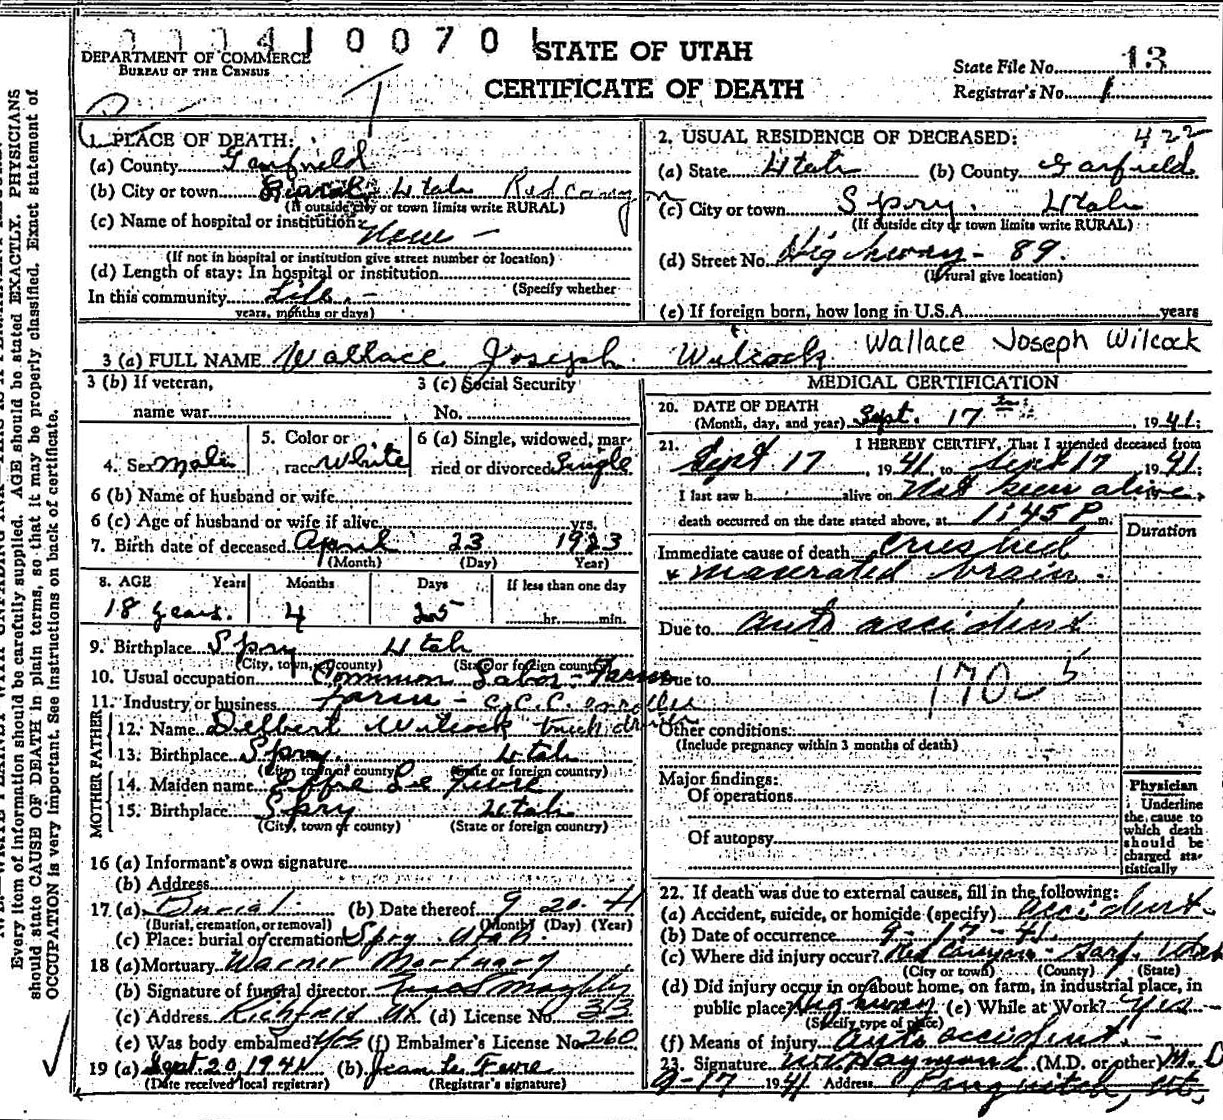 0 0 0 4 1 0 0 7 0 1
STATE OF UTAH
CERTIFICATE OF DEATH
DEPARTMENT OF COMMERCE
BUREAU OF THE CENSUS
State File No. 13
Registrar's No. 1
1. PLACE OF DEATH:
(a) County Garfield
(b) City or town Utah Red Canyon
(If outside city or town limits write RURAL)
(c) Name of hospital or institution: None -
(If not in hospital or institution give street number or location)
(d) Length of stay: In hospital or institution
(Specify whether
In this community Life. -
years, months or days)
2. USUAL RESIDENCE OF DECEASED: 422
(a) State Utah (b) County Garfield
(c) City or town Spry. Utah
(If outside city or town limits write RURAL)
(d) Street No. Highway - 89.
(If rural give location)
(e) If foreign born, how long in U.S.A. years
3 (a) FULL NAME Wallace Joseph Wilcock Wallace Joseph Wilcock
3 (b) If veteran,
name war
3 (c) Social Security
No.
4. Sex male
5. Color or
race White
6 (a) Single, widowed, mar-
ried or divorced Single
6 (b) Name of husband or wife
6 (c) Age of husband or wife if alive yrs.
7. Birth date of deceased April 23 1923
(Month) (Day) Year)
8. AGE Years Months Days If less than one day
18 years. 4 25 hr. min.
9. Birthplace Spry Utah
(City, town, county) (State or foreign country)
10. Usual occupation Common Labor - Farm
11. Industry or business Farm - C.C.C. enrollee
truck driver
FATHER
12. Name Delbert Wilcock
13. Birthplace Spry. Utah
(City, town or county) (State or foreign country)
MOTHER
14. Maiden name Effie Le Fevre
15. Birthplace Spry Utah
(City, town or county) (State or foreign country)
16 (a) Informant's own signature
(b) Address
17 (a) Burial (b) Date thereof 9 20 41
(Burial, cremation, or removal) (Month) (Day) (Year)
(c) Place: burial or cremation Spry Utah.
18 (a) Mortuary Warner Mortuary
(b) Signature of funeral director
(c) Address Richfield Ut (d) License No. 313
(e) Was body embalmed yes (f) Embalmer's License No. 260
19 (a) Sept 20, 1941 (b) Jean Le Fevre
(Date received local registrar) (Registrar's signature)
MEDICAL CERTIFICATION
20. DATE OF DEATH
(Month, day, and year) Sept. 17 , 1941;
21. I HEREBY CERTIFY, That I attended deceased from
Sept 17 , 1941, to Sept 17 1941;
I last saw h alive on Not seen alive,
death occurred on the date stated above, at 1:45 P m.
Duration
Immediate cause of death crushed
+ macerated brain.
Due to auto accident
Due to 170-5
Other conditions:
(Include pregnancy within 3 months of death)
Major findings:
Of operations
Of autopsy
Physician
Underline
the cause to
which death
should be
charged sta-
tistically
22. If death was due to external causes, fill in the following:
(a) Accident, suicide, or homicide (specify) accident.
(b) Date of occurrence 9-17-41.
(c) Where did injury occur? Red Canyon Garf. Utah
(City or town) (County) (State)
(d) Did injury occur in or about home, on farm, in industrial place, in
public place? Highway (e) While at Work? yes -
(Specify type of place)
(f) Means of injury auto accident. -
23. Signature Haymond (M.D. or other) M.D
9-17 1941 Address Panguitch, Ut.
Every item of information should be carefully supplied. AGE should be stated EXACTLY. PHYSICIANS
should state CAUSE OF DEATH in plain terms, so that it may be properly classified. Exact statement of
OCCUPATION is very important. See instructions on back of certificate.